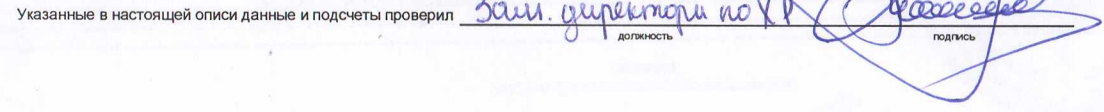 Указанные в настоящей описи данные и подсчеты проверил Зам. директора по ХР
должность подпись